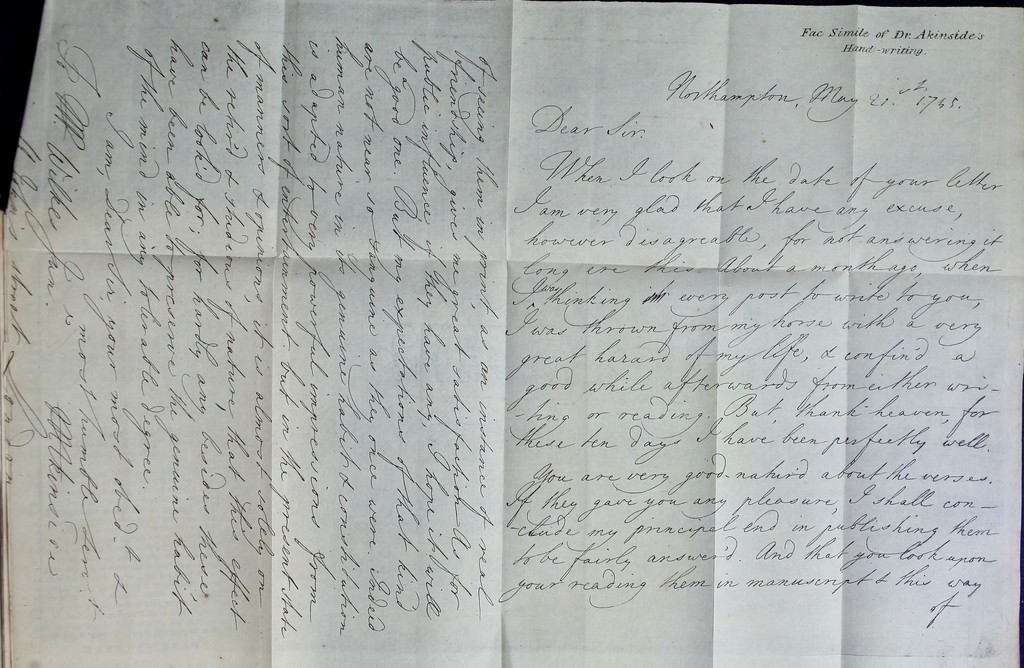 Fac Simile of Dr. Akinside's
Hand-writing.
Northampton, May 21.st 1745.
Dear Sir.
When I look on the date of your letter
I am very glad that I have any excuse,
however disagreable, for not answering it
long ere this. About a month ago, when
I was thinking every post to write to you,
I was thrown from my horse with a very
great hazard of my life, & confin'd a
good while afterwards from either wri-
-ting or reading. But, thank heaven, for
these ten days I have been perfectly well.
You are very good-natur'd about the verses.
If they gave you any pleasure, I shall con-
-clude my principal end in publishing them
to be fairly answer'd. And that you look upon
your reading them in manuscript & this way
of
of seeing them in print, as an instance of real
friendship, gives me great satisfaction. As for
public influence if they have any, I hope it will
be a good one. But my expectations of that kind
are not near so sanguine as they once were. Indeed
human nature in its genuine habit & constitution
is adapted to very powerful impressions from
this sort of entertainment, but in the present state
of manners & opinions, it is almost solely on
the retir'd & studious of nature, that this effect
can be look'd for; for hardly any, besides these
have been able to preserve the genuine habit
of the mind in any tolerable degree.
I am, Dear Sir, your most obed.t &
most humble Serv.t
M Akinside
To Mr Wilkes Jun.
street London